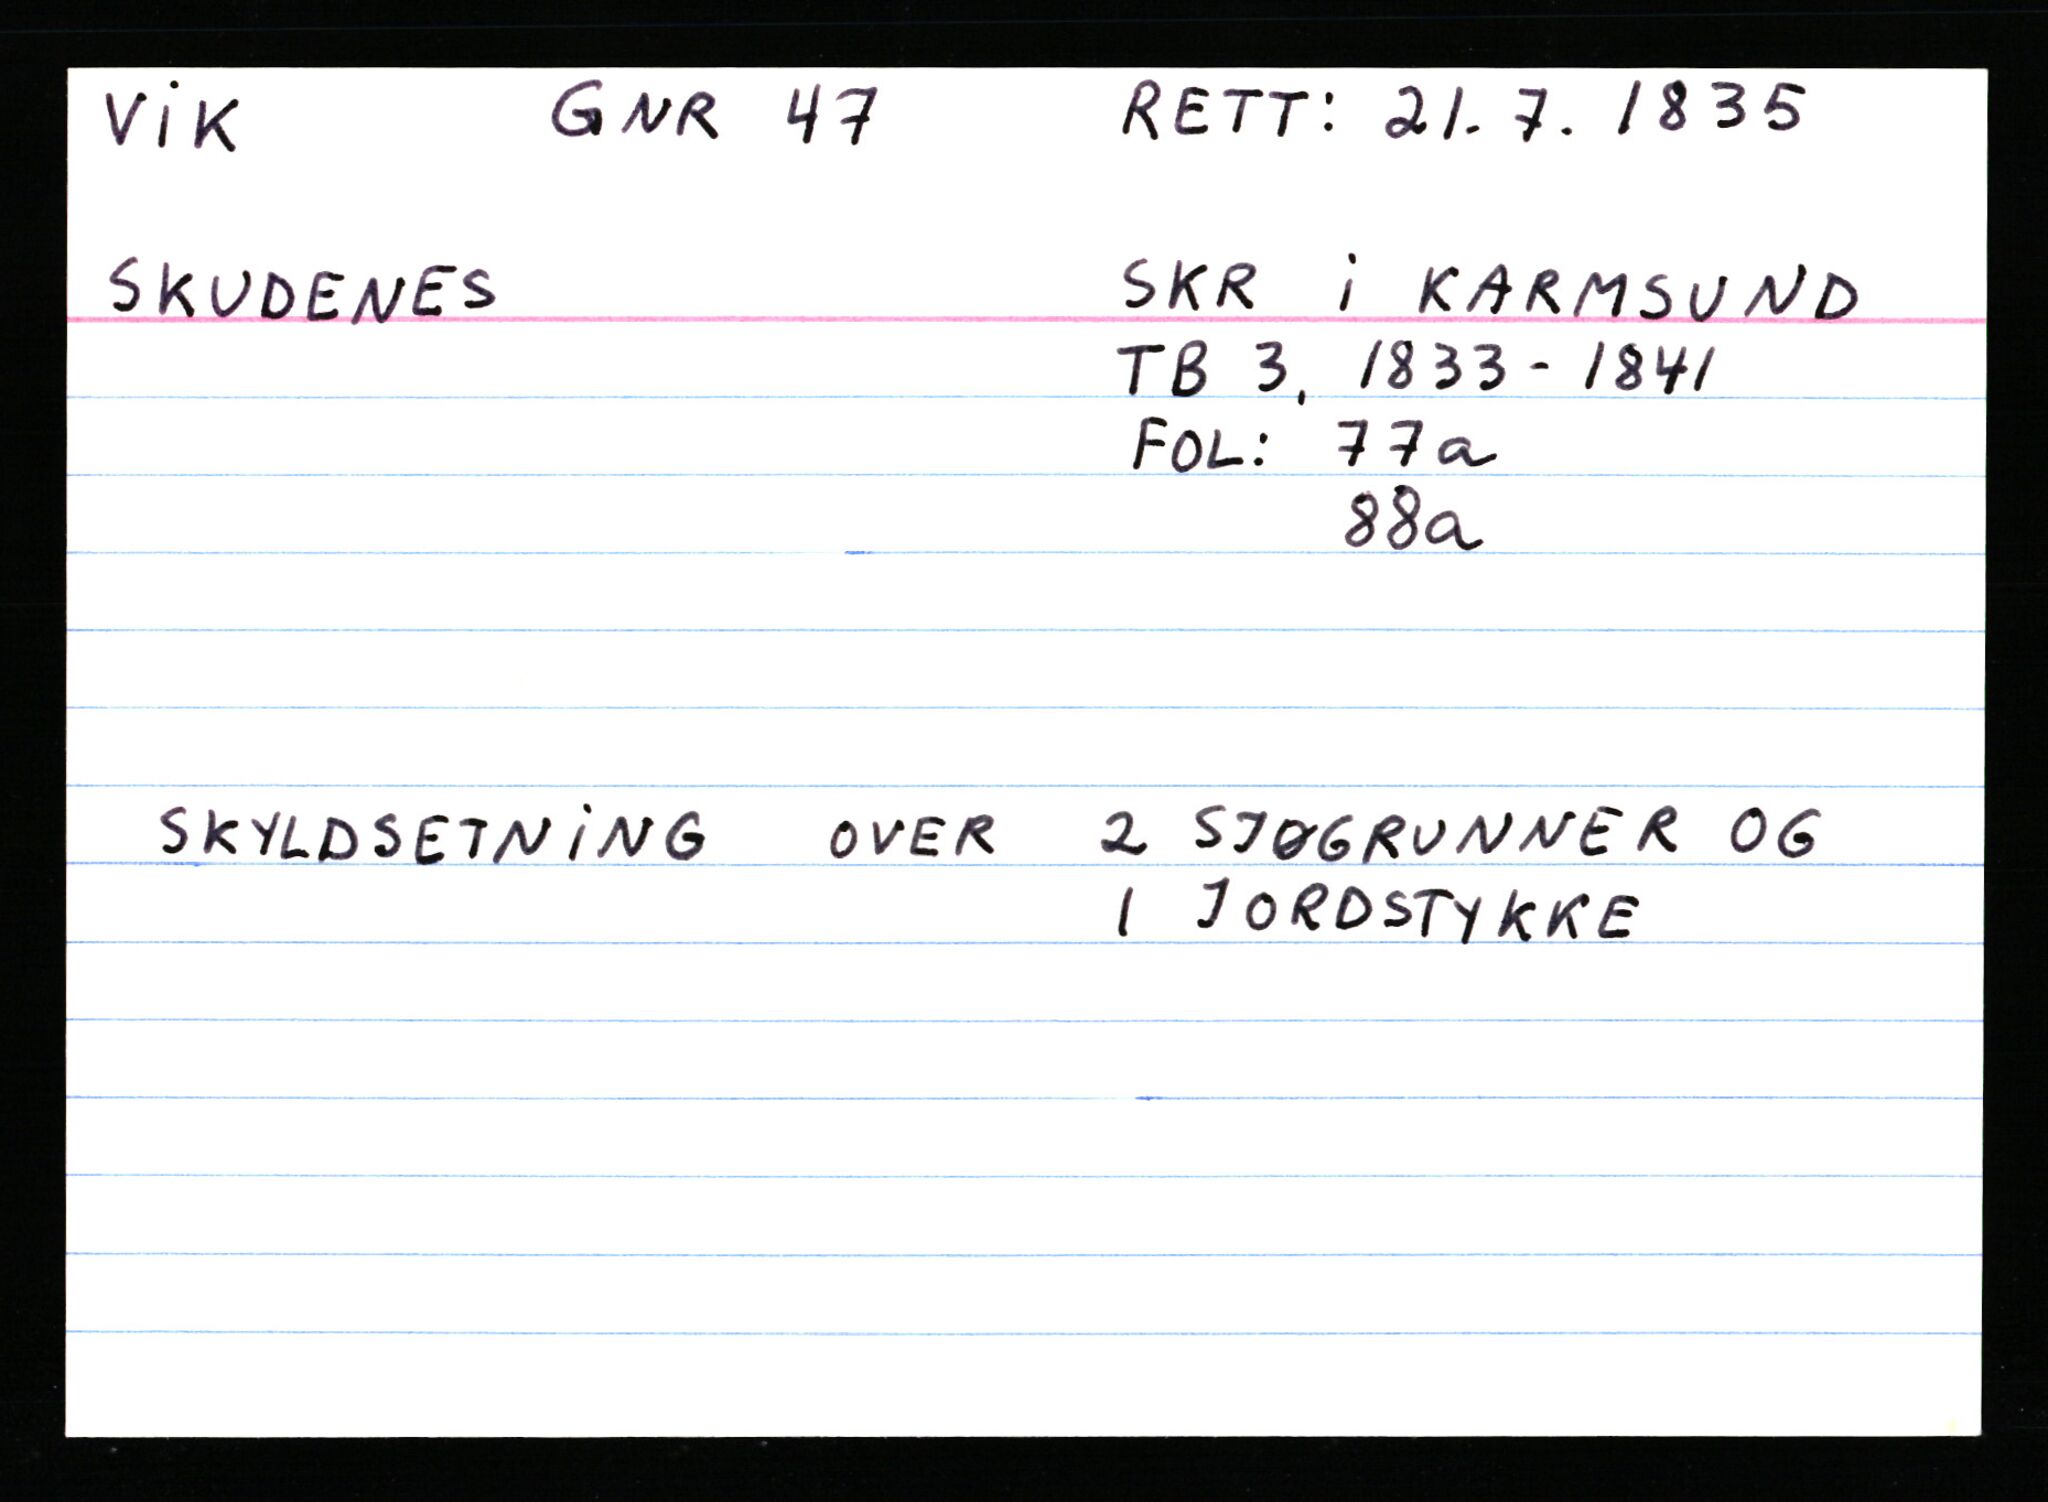 ViK GNR 47 RETT: 21.7.1835
SKUDENES SKR i KARMSUND
TB 3, 1833-1841
FOL: 77a
88a
SKYLDSETNiNG OVER 2 SJØGRUNNER OG
1 JORDSTYKKE